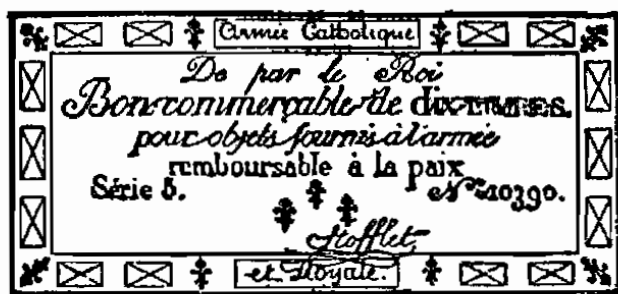 Armée Catholique
De par le Roi
Bon commerçable de dix livres
pour objets fournis à l'armée
remboursable à la paix
Série 5. Nº 10390.
Stofflet
et Royale.